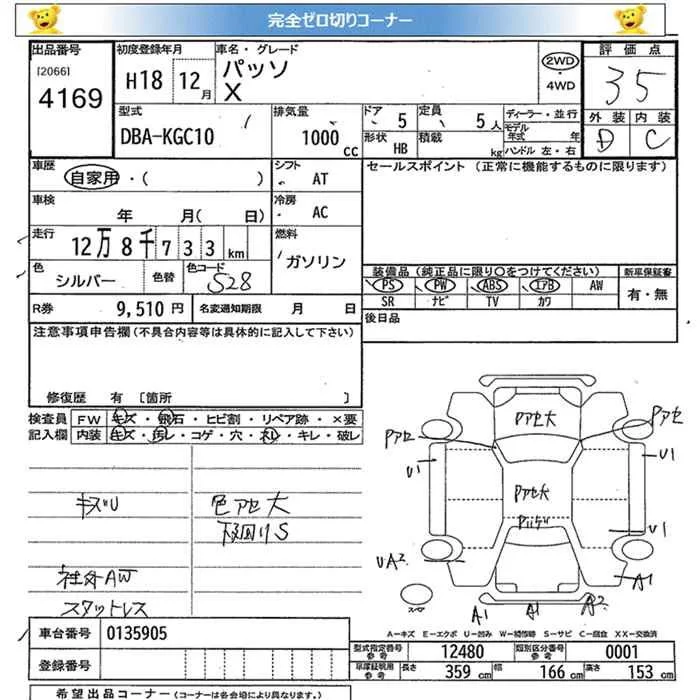 完全ゼロ切りコーナー
出品番号
[2066]
4169
初度登録年月
H18 12月
車名・グレード
パッソ
X
2WD
・
4WD
評価点
3 5
外装 内装
D C
型式
DBA-KGC10
排気量
1000 cc
ドア 5
定員 5人
形状 HB
積載 kg
ディーラー・並行
モデル年式 年
ハンドル 左・右
車歴
自家用・( )
シフト
AT
セールスポイント (正常に機能するものに限ります)
車検
年 月( 日)
冷房
AC
走行
12万8千733km
燃料
ガソリン
色
シルバー
色替
色コード
S28
装備品 (純正品に限り○をつけてください)
PS PW ABS エアB AW
SR ナビ TV カワ
新車保証書
有・無
R券 9,510 円
名変通知期限 月 日
後日品
注意事項申告欄 (不具合内容等は具体的に記入して下さい)
修復歴 有 [箇所 ]
検査員 FW キズ・飛石・ヒビ割・リペア跡・×要
記入欄 内装 キズ・汚レ・コゲ・穴・スレ・キレ・破レ
キズU
色アセ大
下回りS
社外AW
スタットレス
Pアセ大
Pアセ
Pアセ
U1
U1
Pアセ大
U1
UA2
A1
スペア
A1
A1
A2
A-キズ E-エクボ U-凹み W-補修跡 S-サビ C-腐食 XX-交換済
車台番号 0135905
登録番号
型式指定番号 参考 12480
類別区分番号 参考 0001
車庫証明用 参考 長さ 359 cm 幅 166 cm 高さ 153 cm
希望出品コーナー (コーナーは各会場により異なります。)